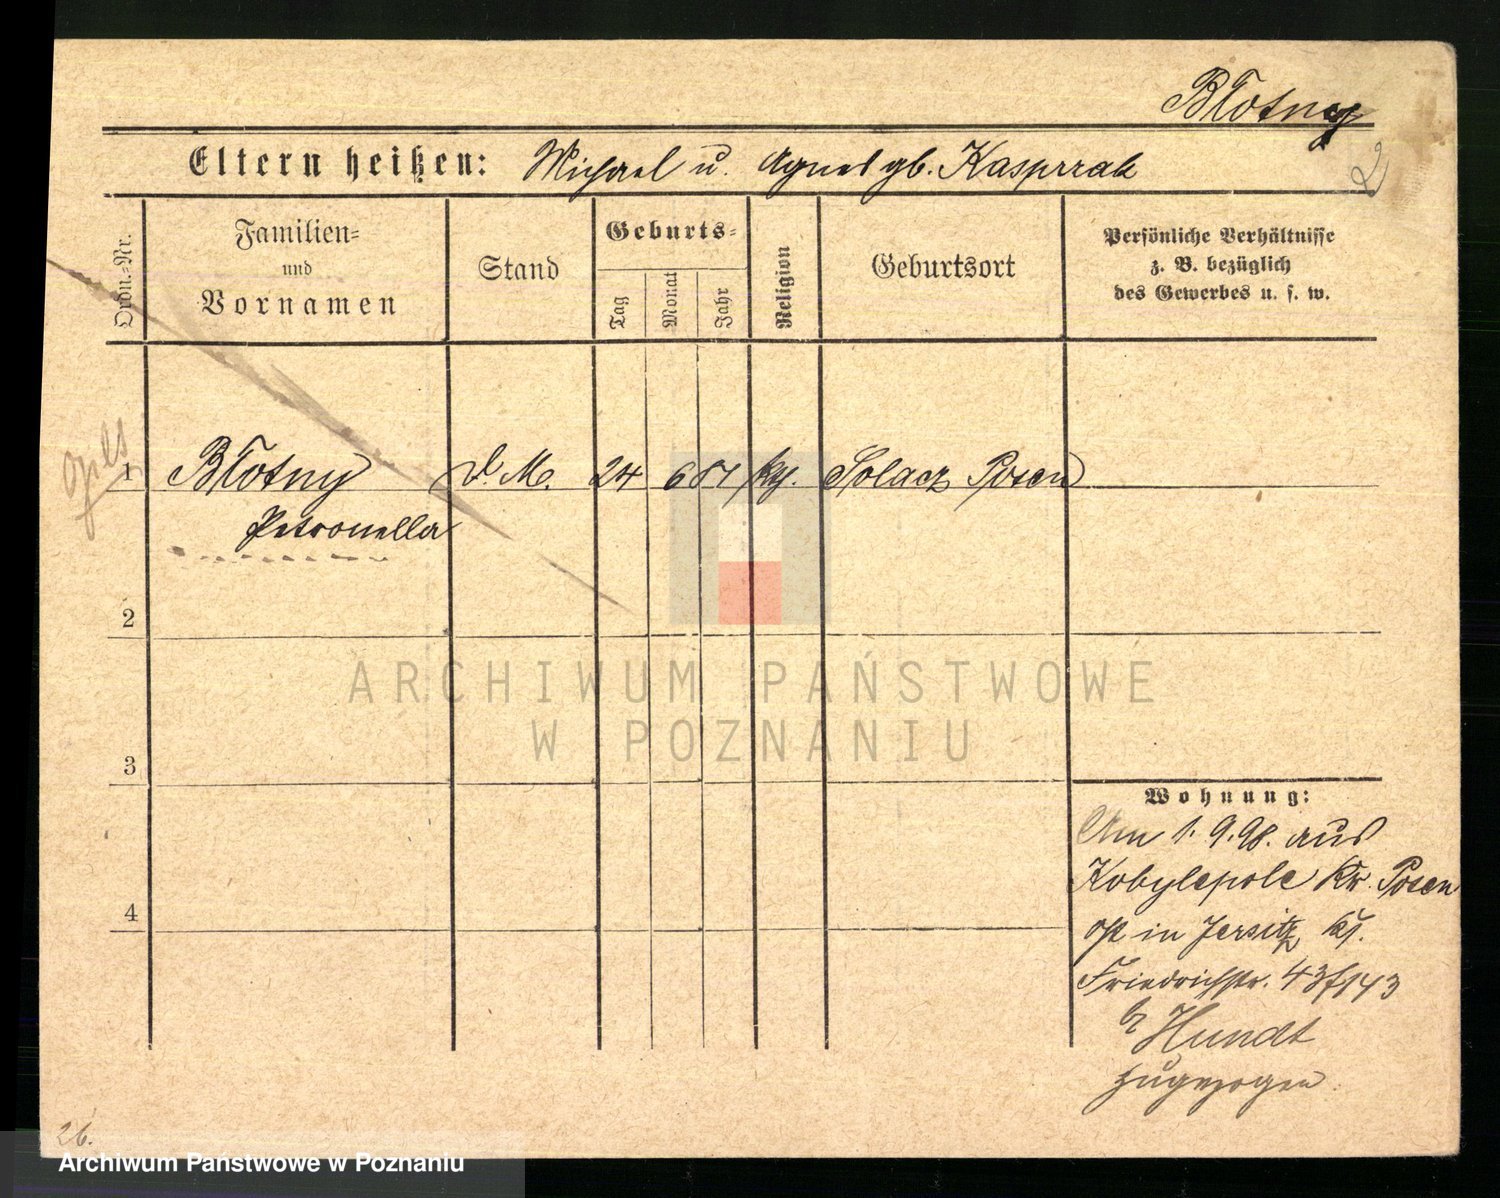 Błotny
2
Eltern heißen: Michael u. Agnes gb. Kasprzak
Ordn.-Nr.
Familien-
und
Vornamen
Stand
Geburts-
Tag
Monat
Jahr
Religion
Geburtsort
Persönliche Verhältnisse
z. B. bezüglich
des Gewerbes u. s. w.
1 Błotny d. M. 24 6 81 kth. Solacz Posen
Petronella
2
3
4
Wohnung:
Am 1. 9. 98. aus
Kobylepole Kr. Posen
in Jersitz
Friedrichstr. 43
Hundt
zugezogen
26.
ARCHIWUM PAŃSTWOWE
W POZNANIU
Archiwum Państwowe w Poznaniu